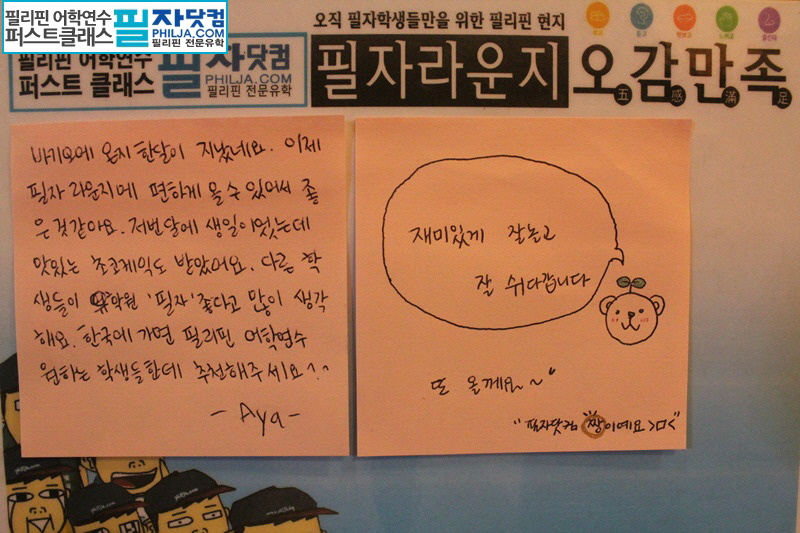 필리핀 어학연수
퍼스트클래스
필자닷컴
PHILJA.COM
필리핀 전문유학
오직 필자학생들만을 위한 필리핀 현지
필리핀 어학연수
퍼스트 클래스
필자닷컴
PHILJA.COM
필리핀 전문유학
필자라운지
오감만족
五 感 滿 足
바기오에 온지 한달이 지났네요. 이제
필자 라운지에 편하게 올수 있어서 좋
은것같아요. 저번달에 생일이었는데
맛있는 초코케익도 받았어요. 다른 학
생들이 유학원 '필자' 좋다고 많이 생각
해요. 한국에 가면 필리핀 어학연수
원하는 학생들한데 추천해주세요^^
- Aya -
재미있게 잘놀고
잘 쉬다갑니다
또 올께요~~"
"필자닷컴 짱이예요 >ㅁ<"